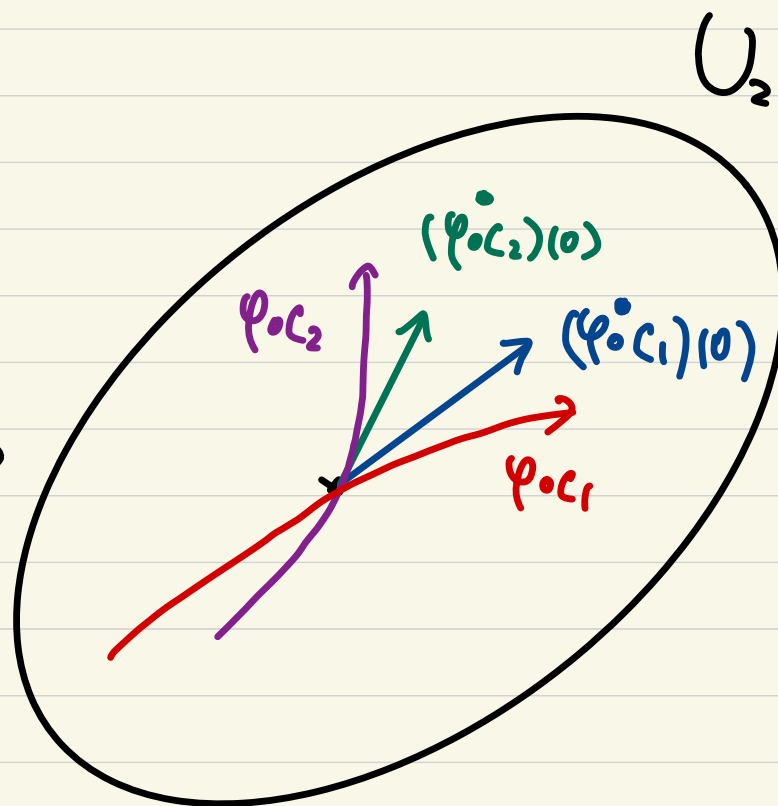 U₂
(φ∘c₂)˙(0)
φ∘c₂
(φ∘c₁)˙(0)
φ∘c₁